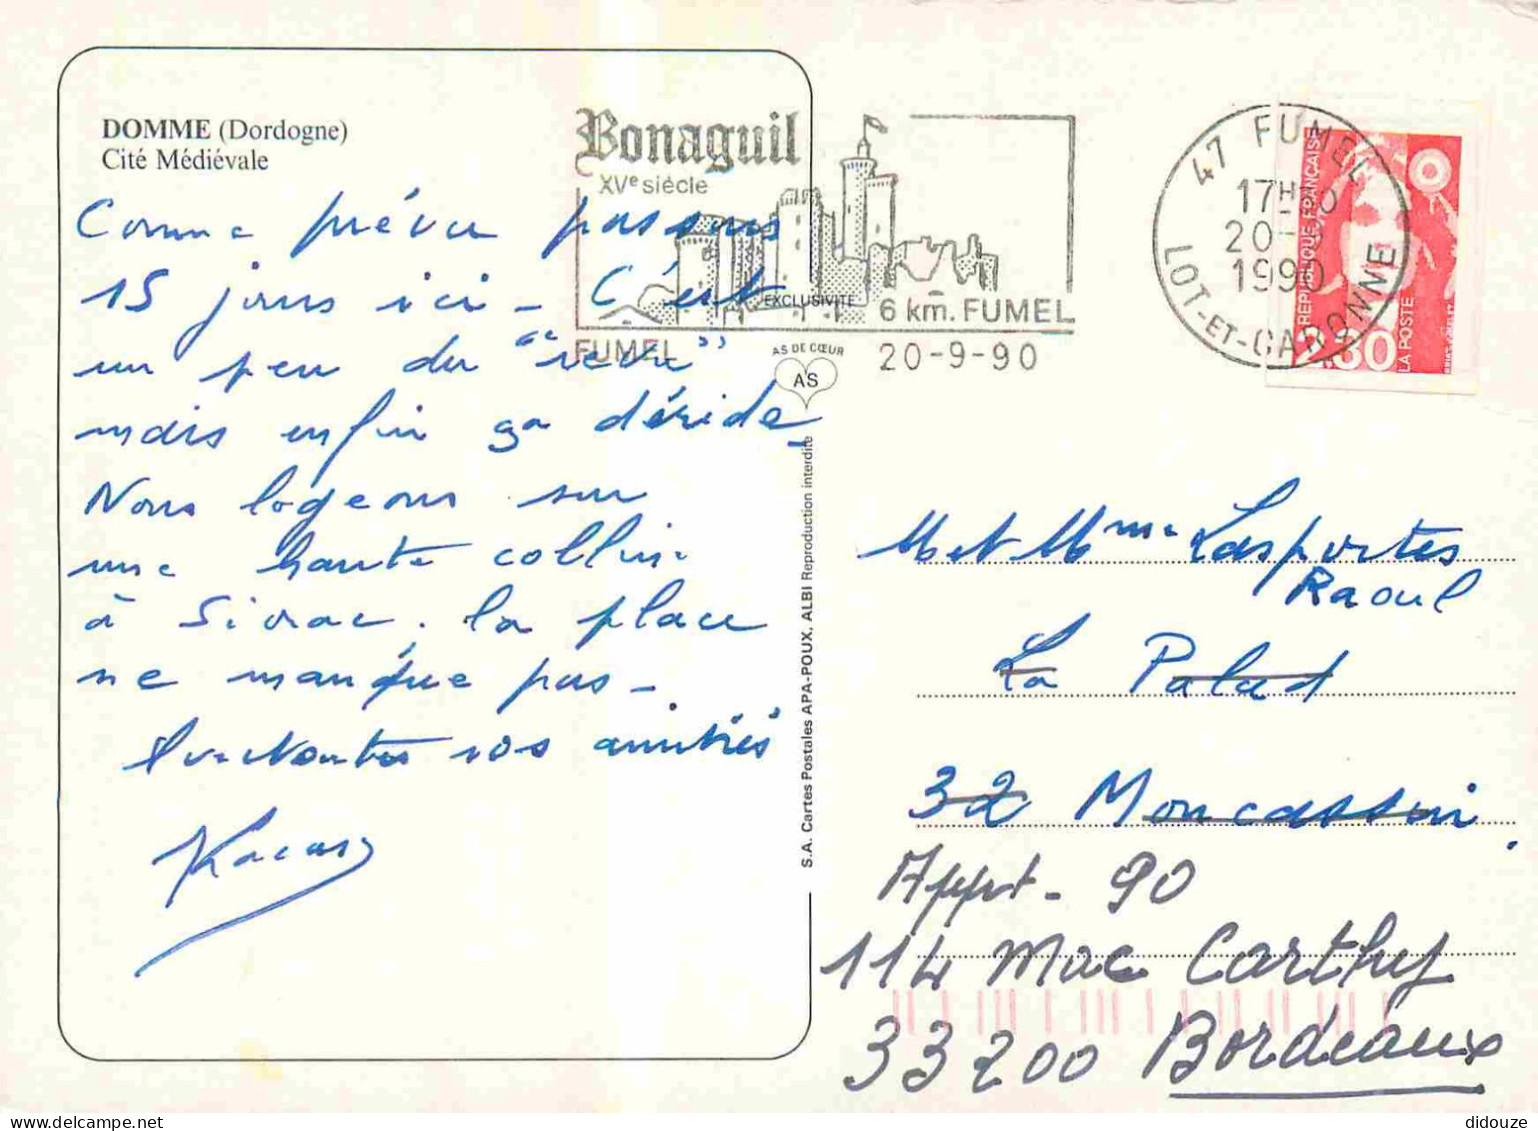 DOMME (Dordogne)
Cité Médiévale
Comme prévu passons
15 jours ici - C'est
un peu du "retro"
mais enfin ça déride
Nous logeons sur
une haute colline
à Sivrac. la place
ne manque pas -
nos amitiés
Bonaguil
XVe siècle
EXCLUSIVITÉ
6 km. FUMEL
FUMEL
20-9-90
AS DE CŒUR
AS
47 FUMEL
17H
20-9
1990
LOT-ET-GARONNE
RÉPUBLIQUE FRANÇAISE
LA POSTE
2.30
S.A. Cartes Postales APA-POUX, ALBI Reproduction interdite
M et Mme Lasportes
Raoul
La Palad
32 Moncassin.
Appt - 90
114 Mac Carthy
33200 Bordeaux
didouze @ delcampe.net